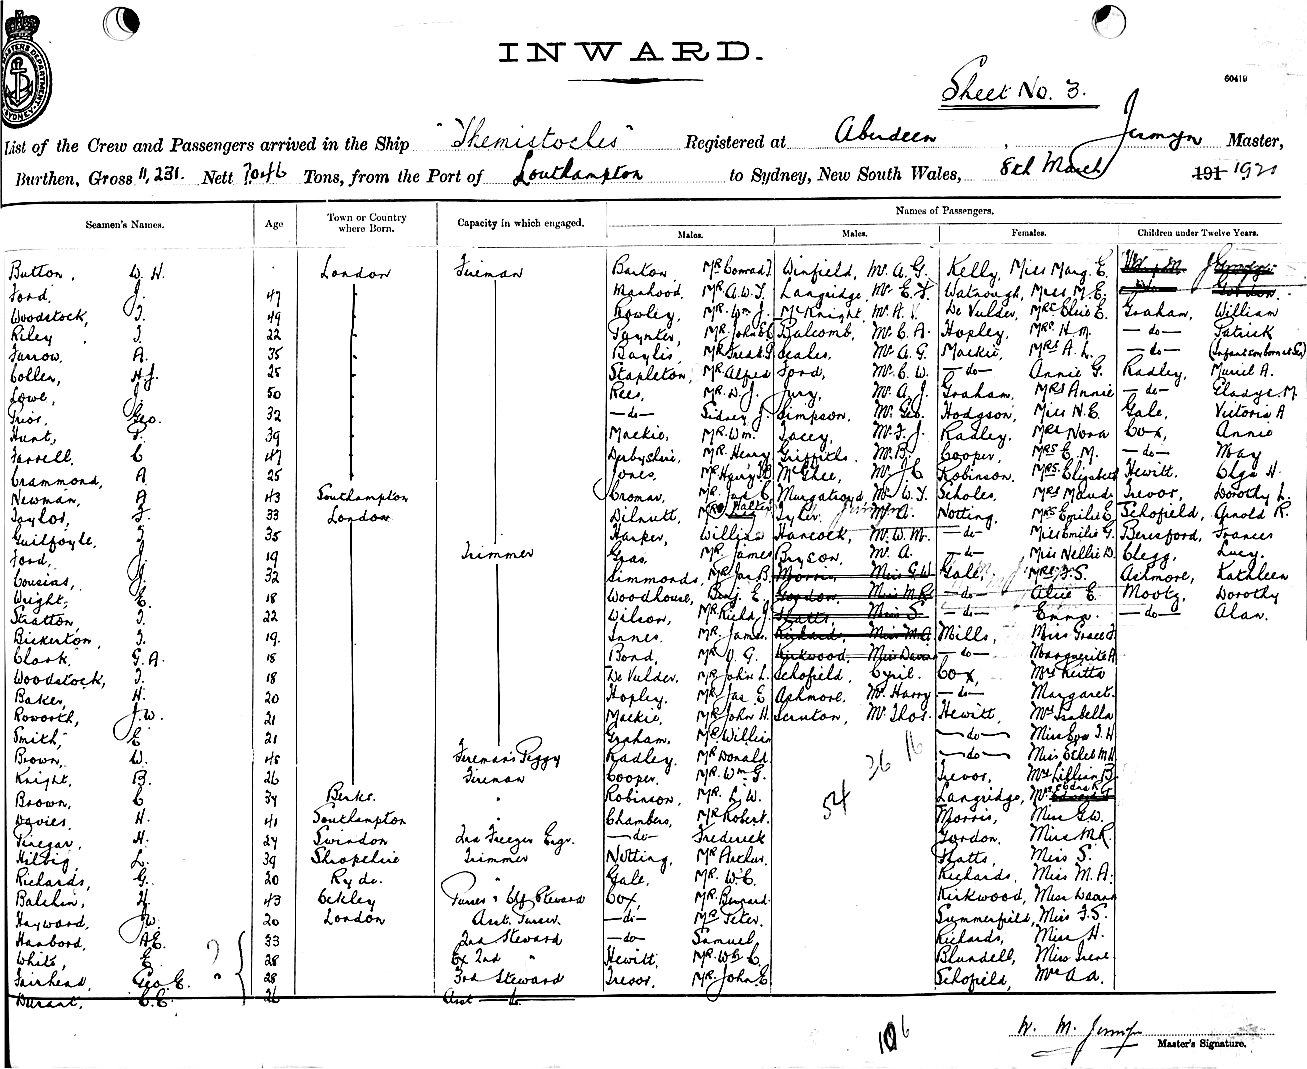 INWARD.
Sheet No. 3.
60419
List of the Crew and Passengers arrived in the Ship "Themistocles" Registered at Aberdeen, Jermyn Master,
Burthen, Gross 11,231. Nett 7046 Tons, from the Port of Southampton to Sydney, New South Wales, 8th March 191 1921
Names of Passengers.
Seamen's Names. Age Town or Country where Born. Capacity in which engaged. Males. Males. Females. Children under Twelve Years.
Button, W. H. London Fireman Barton Mr Conrad J Winfield, Mr. A. G. Kelly, Miss Marg. E.
Ford, J. 47 Manhood. Mr A. W. J. Langridge, Mr E. J. Watnough, Miss M. E.
Woodstock, J. 49 Rowley. Mr Wm J. McKnight, Mr. A. V. De Vulder, Mrs Elsie E. Graham, William
Riley J. 22 Paynter, Mr John E C Balcomb, Mr. C. A. Hopley, Mrs H. M. —do— Patrick
Farrow. A. 35 Baylis. Mr Fredk P. Scales, Mr. A. G. Mackie, Mrs A. L. —do— (Infant son born at Sea)
Collen, H. J. 25 Stapleton, Mr Alfred Ford, Mr. C. W. —do— Annie G. Radley, Muriel A.
Lowe, J. 50 Rees, Mr D. J. Jury, Mr. A. J. Graham, Mrs Annie —do— Gladys M.
Prior, Geo. 32 —do— Sidney J. Simpson, Mr. Geo. Hodgson, Miss N. E. Gale, Victoria A
Hunt, 39 Mackie, Mr. Wm. Lacey, Mr. F. J. Radley, Mrs Nora Cox, Annie
Farrell. C 47 Derbyshire, Mr. Henry Griffiths. Mr. B. Cooper, Mrs E. M. —do— May
Crammond, A 25 Jones, Mr Harry McGhee, Mr. J. C. Robinson, Mrs. Elizabeth Hewitt. Olga H.
Newman, A 43 Southampton Cromar, Mr. Jas C. Murgatroyd, Mr W. J. Scholes, Mrs Maude Trevor, Dorothy L.
Taylor, J 33 London Dilnutt, Mr Walter Tyler. Mr A. Notting, Mrs Emilie E. Schofield, Arnold R.
Guilfoyle, J 35 Harper, William Hancock, Mr. W. M. —do— Miss Emilie G. Beresford, Frances
Ford, J 19 Trimmer Gras, Mr. James Bryson, Mr. A. —do— Miss Nellie D. Clegg, Lucy.
Cousins, J 32 Simmonds, Mr Jas B. Morris Miss G. W. Gale, Mrs F. S. Ashmore, Kathleen
Wright, E. 18 Woodhouse, Benj. E. Gordon, Miss M R —do— Alice E. Mootz, Dorothy
Stratton J. 22 Wilson, Mr Richd J. Statts, Miss S. —do— Emma. —do— Alan.
Bickerton, J. 19. Innes, Mr. James. Richards, Miss M. A. Mills, Miss Grace J.
Clark. G. A. 18 Bond, Mr V. G. Kirkwood, Miss —do— Marguerite A
Woodstock, J. 18 De Vulder. Mr John L. Schofield, Cyril. Cox,
Baker, H. 20 Hopley, Mr Jas E Ashmore, Mr. Harry —do— Margaret.
Roworth, J. W. 21 Mackie, Mr John H. Scruton, Mr. Thos. Hewitt, Mrs Isabella
Smith, E 21 Graham, Mr William —do— Miss Eva I. H
Brown, W. 45 Fireman's Peggy Radley, Mr Donald. —do— Miss Ethel M.
Knight, B. 26 Fireman Cooper, Mr. Wm. G. 36 16 Trevor, Mrs Lillian B.
Brown, C 34 Berks. " Robinson, Mr. L. W. 54 Langridge, Mrs Edna R
Davies, H. 41 Southampton " Chambers, Mr Robert. Morris, Miss G. W.
Vinegar, H. 24 Swindon 2nd Freezer Engr. —do— Frederick Gordon, Miss M. R.
Hillig L. 39 Shropshire Trimmer Notting, Mr Arthur. Statts, Miss S.
Richards, G. 20 Ryde. " Gale, Mr. W. C. Richards, Miss M. A.
Balchin, H 43 Purser & Chf Steward Cox, Mr. Bernard. Kirkwood, Miss
Hayward, W. 20 London Asst. Purser. —do— Mr Peter. Summerfield, Miss F. S.
Harbord, A. E. 33 2nd Steward —do— Samuel, Richards, Miss H.
White, E. ? 28 Ex 2nd " Hewitt, Mr Wm C Blundell, Miss Irene
Fairhead, Geo. E. " 28 3rd Steward Trevor, Mr. John E Schofield, Mrs A. A.
Durant, C. C. 26 Asst do
106
W. M. Jermyn
Master's Signature.